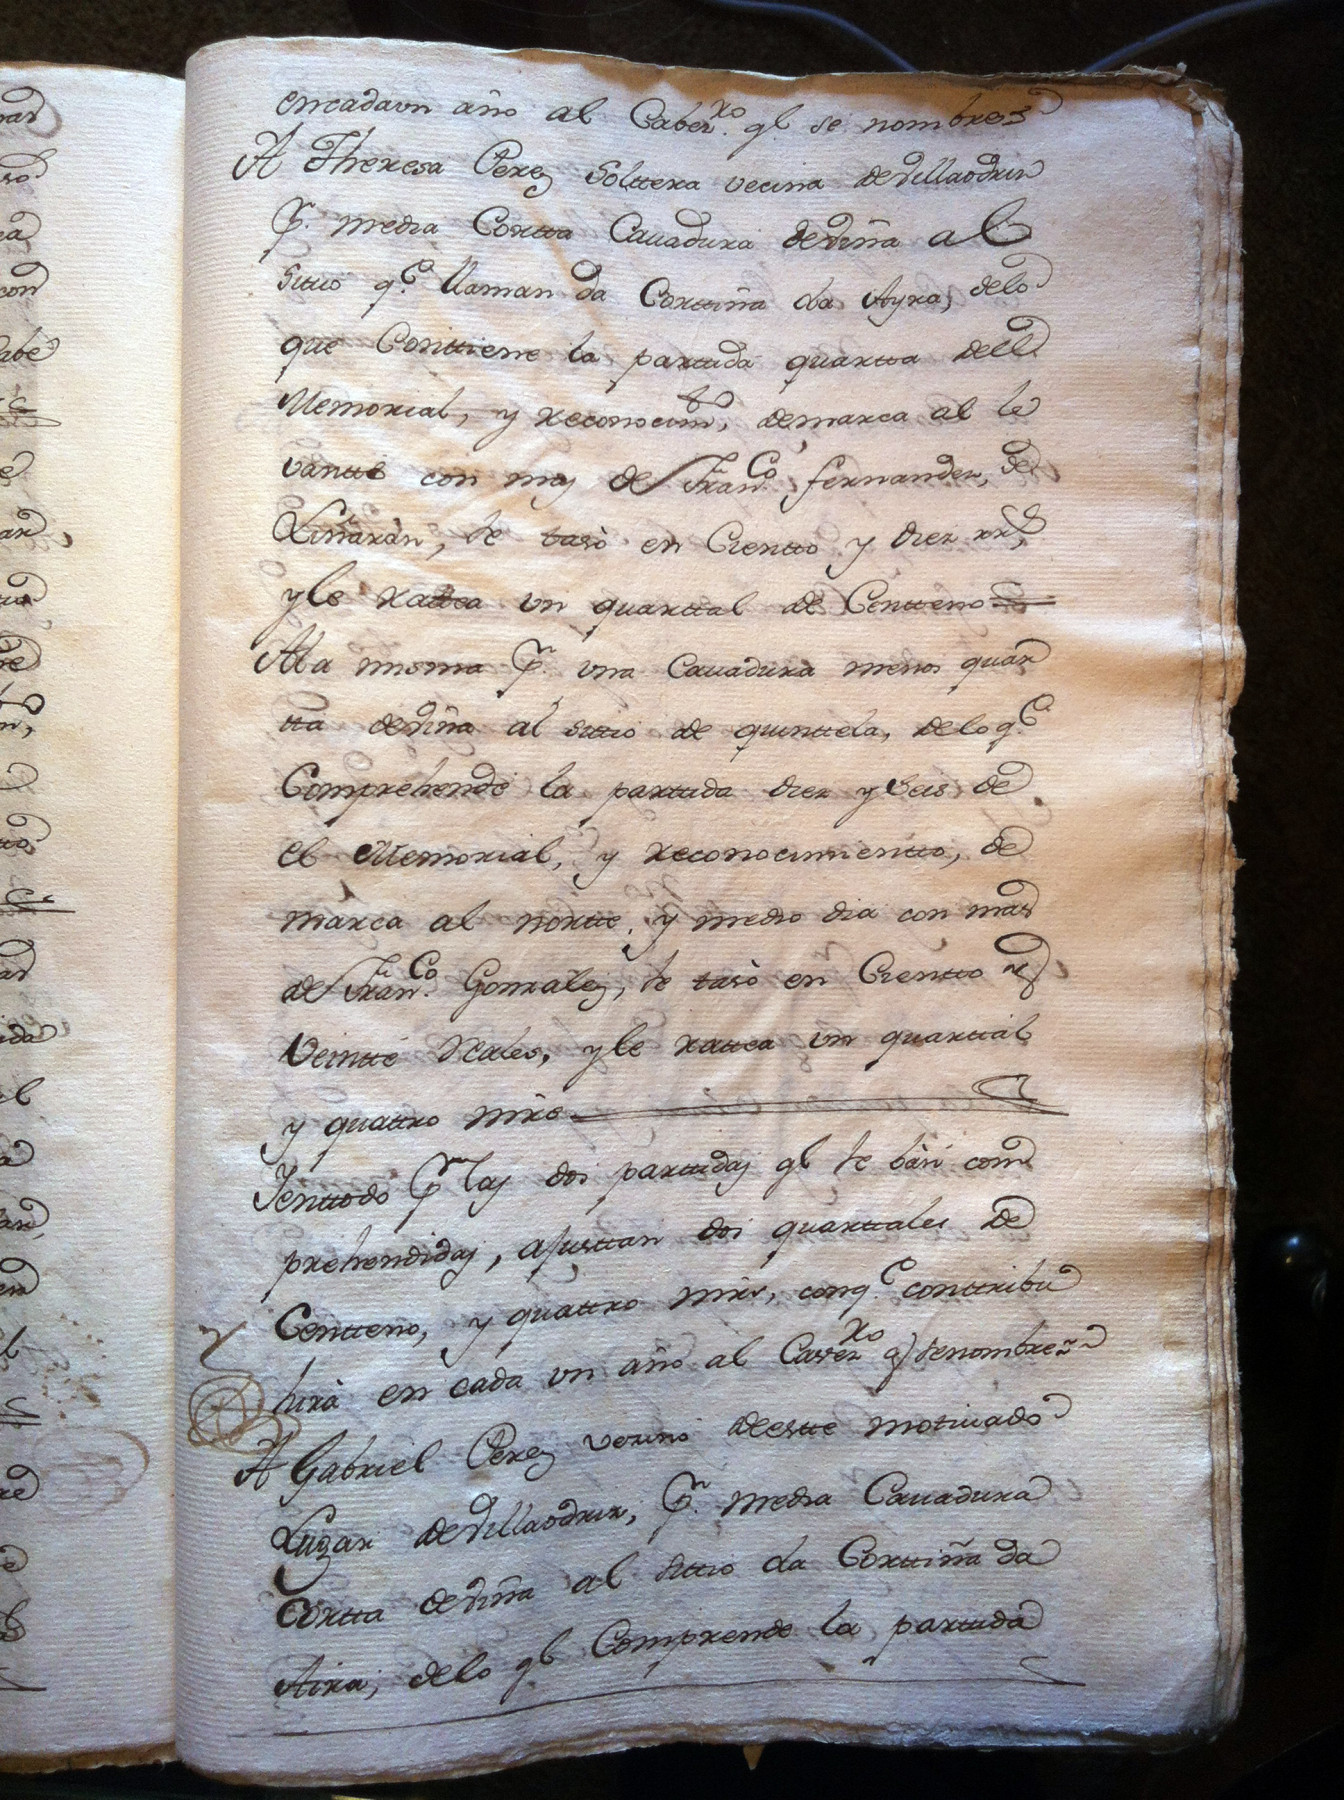 encadaun año al Cabez.ro ql se nombre
A Theresa Perez Solttera vecina deVillaodriz
Pr. media Cortta Cauadura deviña al
sitio q.e llaman da Corttiña da Ayra, delo
que Conttiene la parttida quartta del
Memorial, y reconocim.to, demarca al le
vantte con mas de Fran.co fernandez, de
Liñarán, se tasò en Cientto y diez rr.s,
yle ratea un quarttal de Centteno
Ala misma Pr. una Cauadura menos quar
tta deviña al sitio de quinttela, delo q.e
Comprehende la parttida diez y seis de
el Memorial, y reconocimientto, de
marca al nortte, y medio dia con mas
de Fran.co Gonzalez, se tasò en Cientto y
Veintte Reales, yle rattea un quarttal
y quattro mrs
Ienttodo Pr las dos parttidas ql se bàn com
prehendidas, ajusttan dos quarttales de
Centteno, y quattro mrs, conq.e conttribu
hirà en cada un año al Cavez.ro ql senombre
A Gabriel Perez vecino deestte motiuado
Lugar deVillaodriz, Pr. media Cauadura
Cortta deviña al sittio da Corttiña da
Aira, delo ql Comprende la parttida